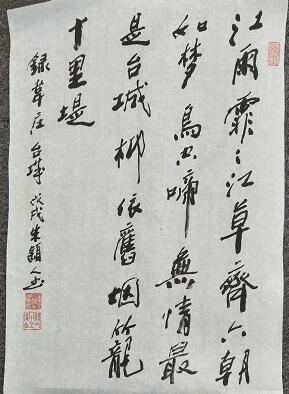 江雨霏〻江草齊六朝
如梦鳥空啼無情最
是台城柳依舊烟籠
十里堤
録韋庄台城 戊戌朱穎人书